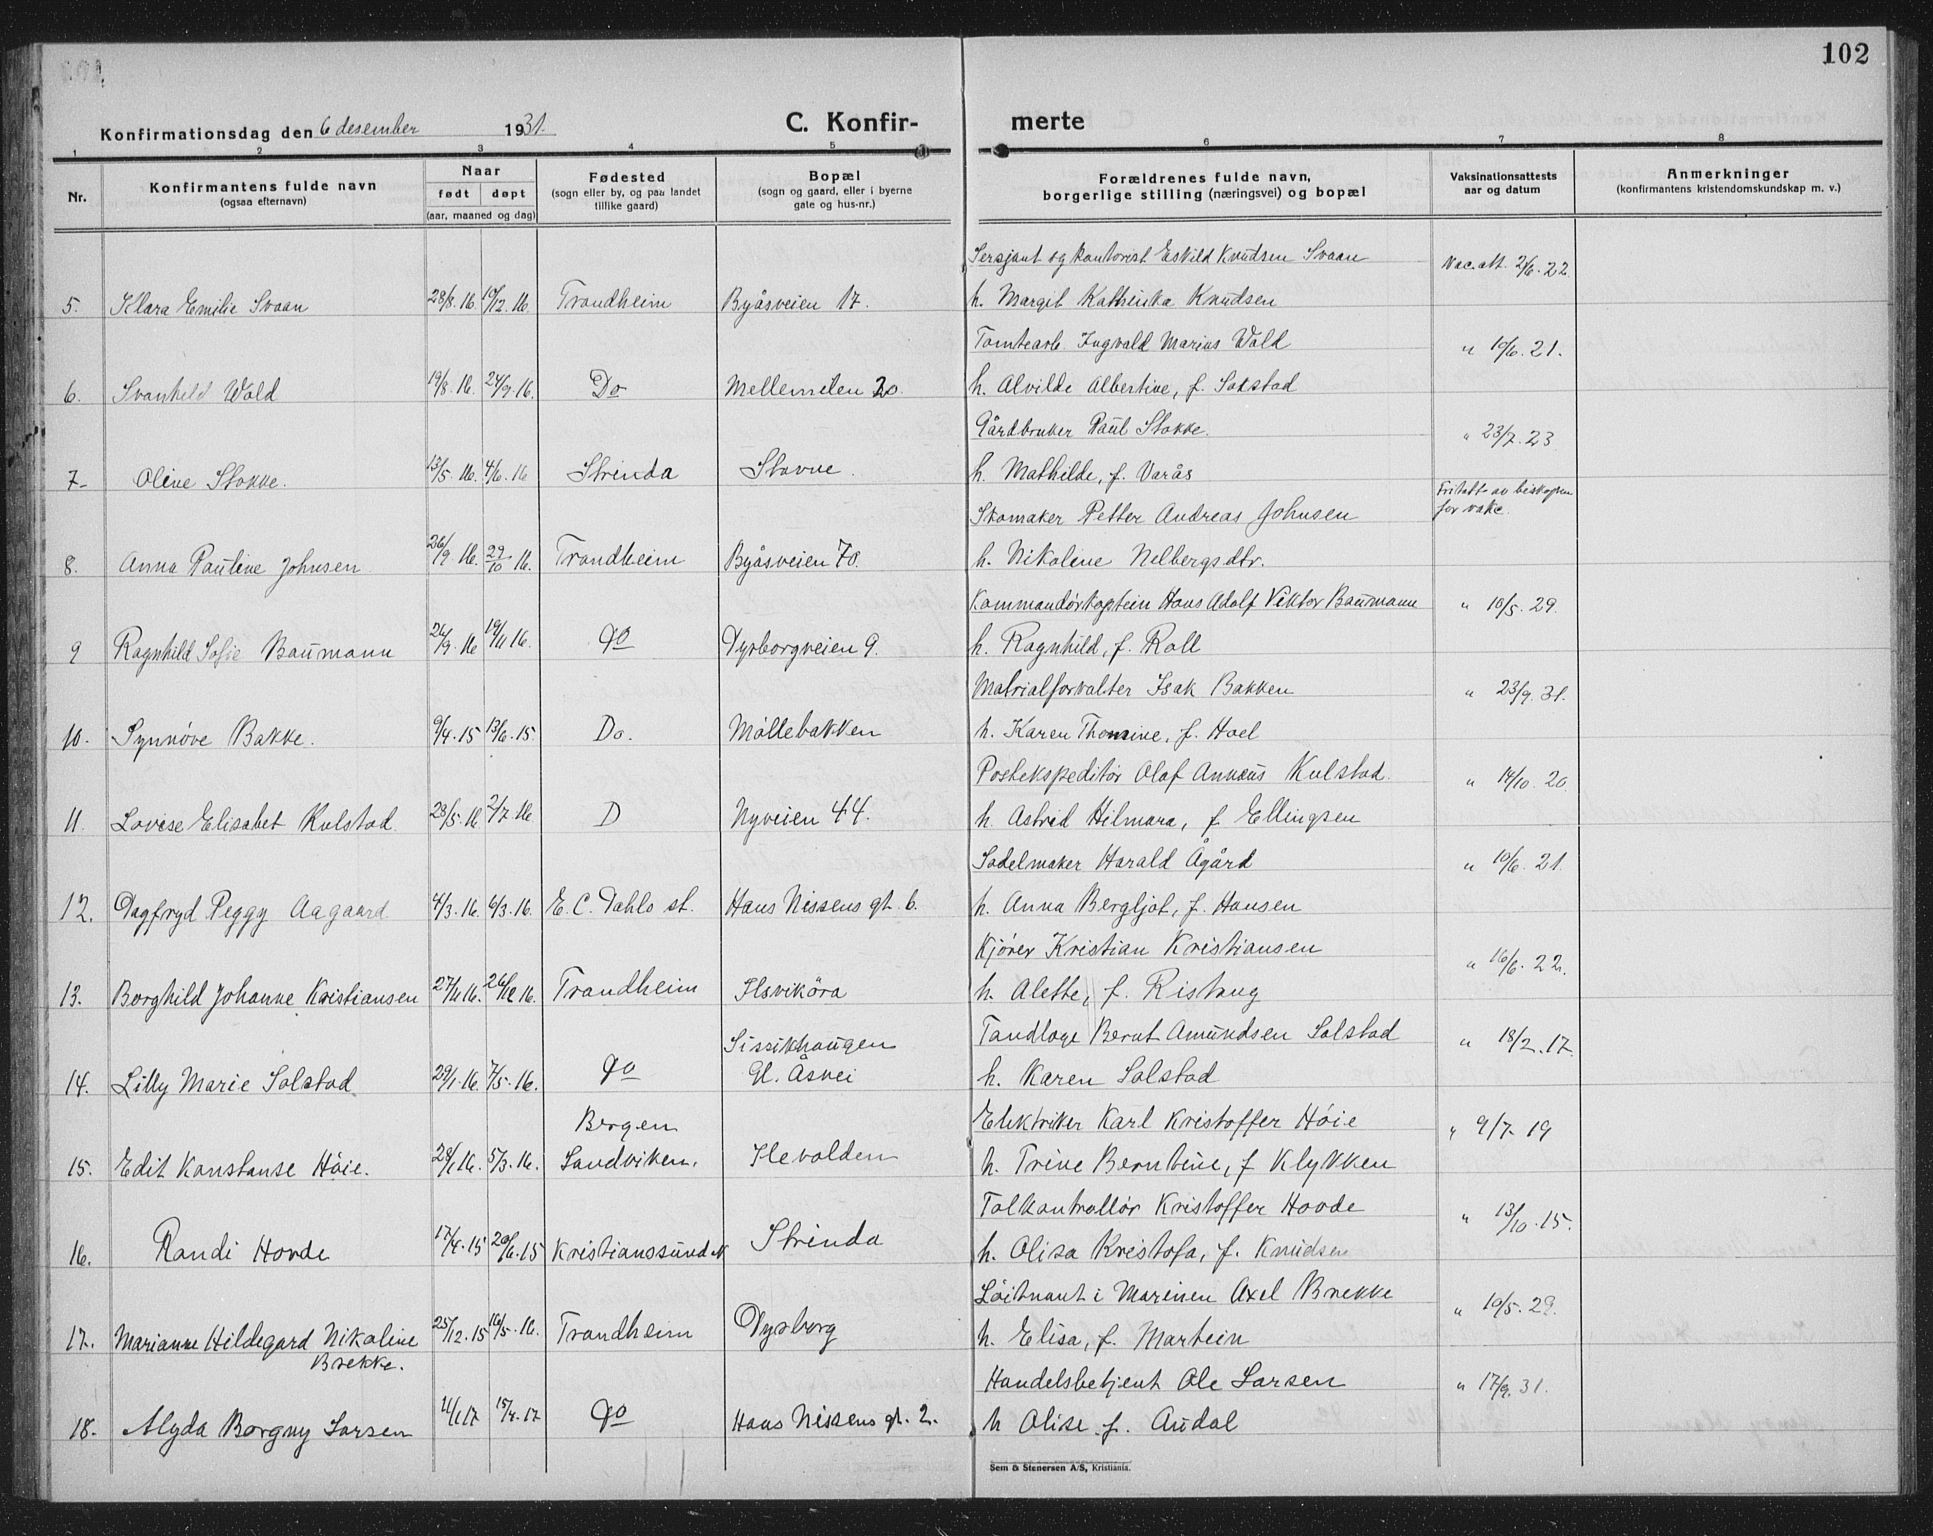 102
Konfirmationsdag den 6 desember 1931.
C. Konfirmerte
1 2 3 4 5 6 7 8
Nr.
Konfirmantens fulde navn
(ogsaa efternavn)
Naar
født døpt
(aar, maaned og dag)
Fødested
(sogn eller by, og paa landet
tillike gaard)
Bopæl
(sogn og gaard, eller i byerne
gate og hus-nr.)
Forældrenes fulde navn,
borgerlige stilling (næringsvei) og bopæl
Vaksinationsattests
aar og datum
Anmerkninger
(konfirmantens kristendomskundskap m. v.)
Sersjant og kontorist Eskild Knudsen Svaan Vac. att. 2/6. 22.
5. Klara Emilie Svaan 28/8. 16. 10/12. 16. Trondheim Byåsveien 17. h. Margit Kathinka Knudsen
Tomtearb. Ingvald Marius Wold " 10/6. 21.
6. Svanhild Wold 19/8. 16. 24/9. 16. Do Mellemilen 20. h. Alvilde Albertine, f. Sakstad
Gårdbruker Paul Stokke. " 23/7. 23
7- Oline Stokke. 13/5. 16. 4/6. 16 Strinda Stavne. h. Mathilde, f. Varås
Skomaker Petter Andreas Johnsen Fritatt av biskopen
for vakc.
8. Anna Pauline Johnsen 26/9. 16. 29/10 16. Trondheim Byåsveien 70. h. Nikoline Nelbergsdtr.
Kommandørkaptein Hans Adolf Viktor Baumann " 10/5. 29.
9 Ragnhild Sofie Baumann 26/9. 16 19/11 16. do Dyrborgveien 9. h. Ragnhild, f. Roll
Matrialforvalter Isak Bakken " 23/9. 31.
10. Synnøve Bakke. 9/4. 15 13/6. 15. Do. Møllebakken h. Karen Thomine, f. Hoel
Postekspeditør Olaf Annæus Kulstad. " 14/10. 20
11. Lovise Elisabet Kulstad. 23/5. 16 2/7. 16 D Nyveien 44. h. Astrid Hilmara, f. Ellingsen
Sadelmaker Harald Ågård " 10/6. 21.
12. Dagfryd Peggy Aagaard 4/3. 16. 6/3. 16. E. C. Dahls st. Hans Nissens gt. 6. h. Anna Bergljot, f. Hansen
Kjører Kristian Kristiansen " 16/6. 22.
13. Borghild Johanne Kristiansen 27/11 16. 26/12 16. Trondheim Ilsvikøra h. Alette, f. Ristaug
Sissikhaugen Tandlæge Bernt Amundsen Solstad " 18/2. 17.
14. Lilly Marie Solstad 29/1. 16. 7/5. 16. do Gl. Åsvei h. Karen Solstad
Bergen Elektriker Karl Kristoffer Höie " 9/7- 19
15. Edit Konstanse Höie. 28/1 16. 5/3. 16. Sandviken. Ilevolden h. Trine Berntine, f Klykken
Tolkontrollör Kristoffer Hovde " 13/10. 15.
16. Randi Hovde 17/4. 15 20/6. 15 Kristianssund N Strinda h. Olisa Kristofa, f. Knudsen
Löitnant i Marinen Axel Brekke " 10/5. 29.
17. Marianne Hildegard Nikoline 25/12. 15 16/5. 16. Trondheim Dyrborg h. Elisa, f. Martein
Brekke.
Handelsbetjent Ole Larsen " 17/9. 31.
18. Alyda Borgny Larsen 11/1 17 15/4. 17 do Hans Nissens gt. 2. h Olise f. Audal
Sem & Stenersen A/S, Kristiania.